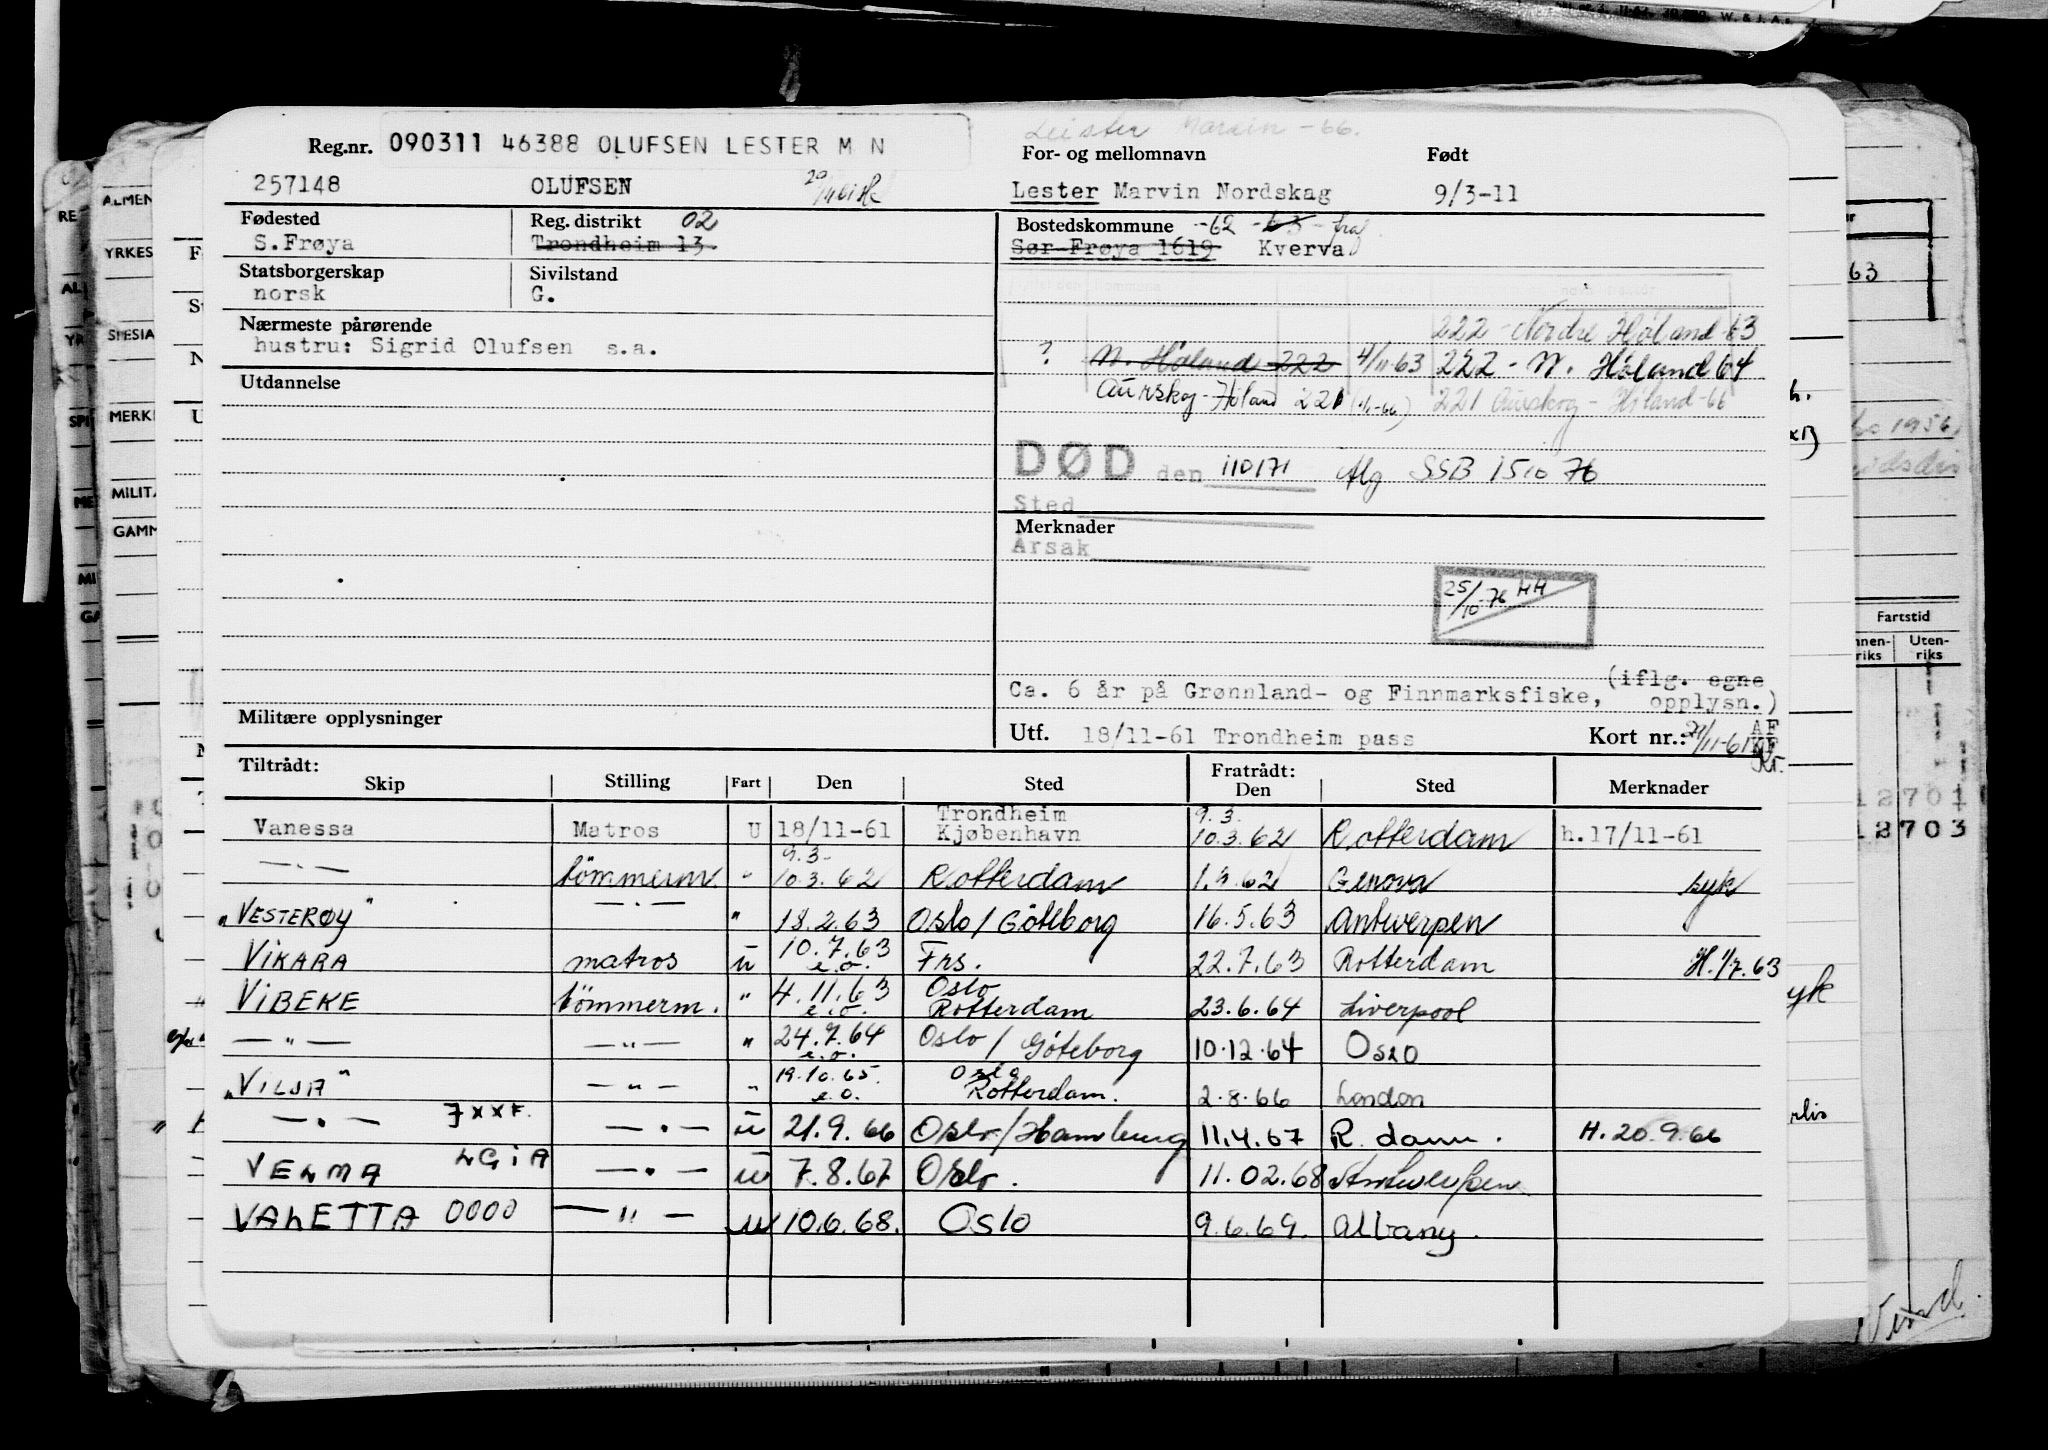 Leister Marvin -66.
Reg.nr. 090311 46388 OLUFSEN LESTER M N
For- og mellomnavn Født
257148 OLUFSEN Lester Marvin Nordskag 9/3-11
Fødested Reg. distrikt 02 Bostedskommune -62 -63 fra
S.Frøya Trondheim 13. Sør-Frøya 1619 Kverva
Statsborgerskap Sivilstand
norsk G.
Nærmeste pårørende 222 - Nordre Høland -63
hustru: Sigrid Olufsen s.a. ? N. Høland 222 4/11 63 222 - N. Høland 64
Utdannelse Aurskog-Høland 221 (1/1-66) 221 Aurskog - Høland -66
DØD den 110171 Mlg SSB 1510 76
Sted
Merknader
Årsak
25/10-76 HH
(iflg. egne
Ca. 6 år på Grønnland- og Finnmarksfiske, opplysn.)
Militære opplysninger
Utf. 18/11-61 Trondheim pass Kort nr.: 21/11-61 AF
KF
Kr.
Tiltrådt: Fratrådt:
Skip Stilling Fart Den Sted Den Sted Merknader
Vanessa Matros U 18/11-61 Trondheim Kjøbenhavn 9.3. 10.3.62 Rotterdam h.17/11-61
— . — tömmerm. " 9.3- 10.3.62 Rotterdam 1.9.62 Genova syk
"VESTERØY" — . — " 18.2.63 Oslo / Göteborg 16.5.63 Antwerpen
VIKARA matros u 10.7.63 e.o. Frs. 22.7.63 Rotterdam H. 1/7.63
VIBEKE tömmerm. " 4.11.63 e.o. Oslo Rotterdam 23.6.64 Liverpool
— " — — " — " 24.7.64 e.o. Oslo / Göteborg 10.12.64 Oslo
"VILJA" — " — " 19.10.65. e.o. Oslo Rotterdam. 2.8.66 London
— . — JXXF. — . — u 21.9.66 Oslo / Hamburg 11.4.67 R. dam. H. 20.9.66
VELMA LGIA — . — u 7.8.67 Oslo. 11.02.68 Antwerpen
VALETTA 0000 — " — u 10.6.68. Oslo 9.6.69. Albany.
Fartstid
Innen-riks Uten-riks
12701
12703
ALMEN
YRKES
SPESIA
MERK
MILITÆ
GAMM